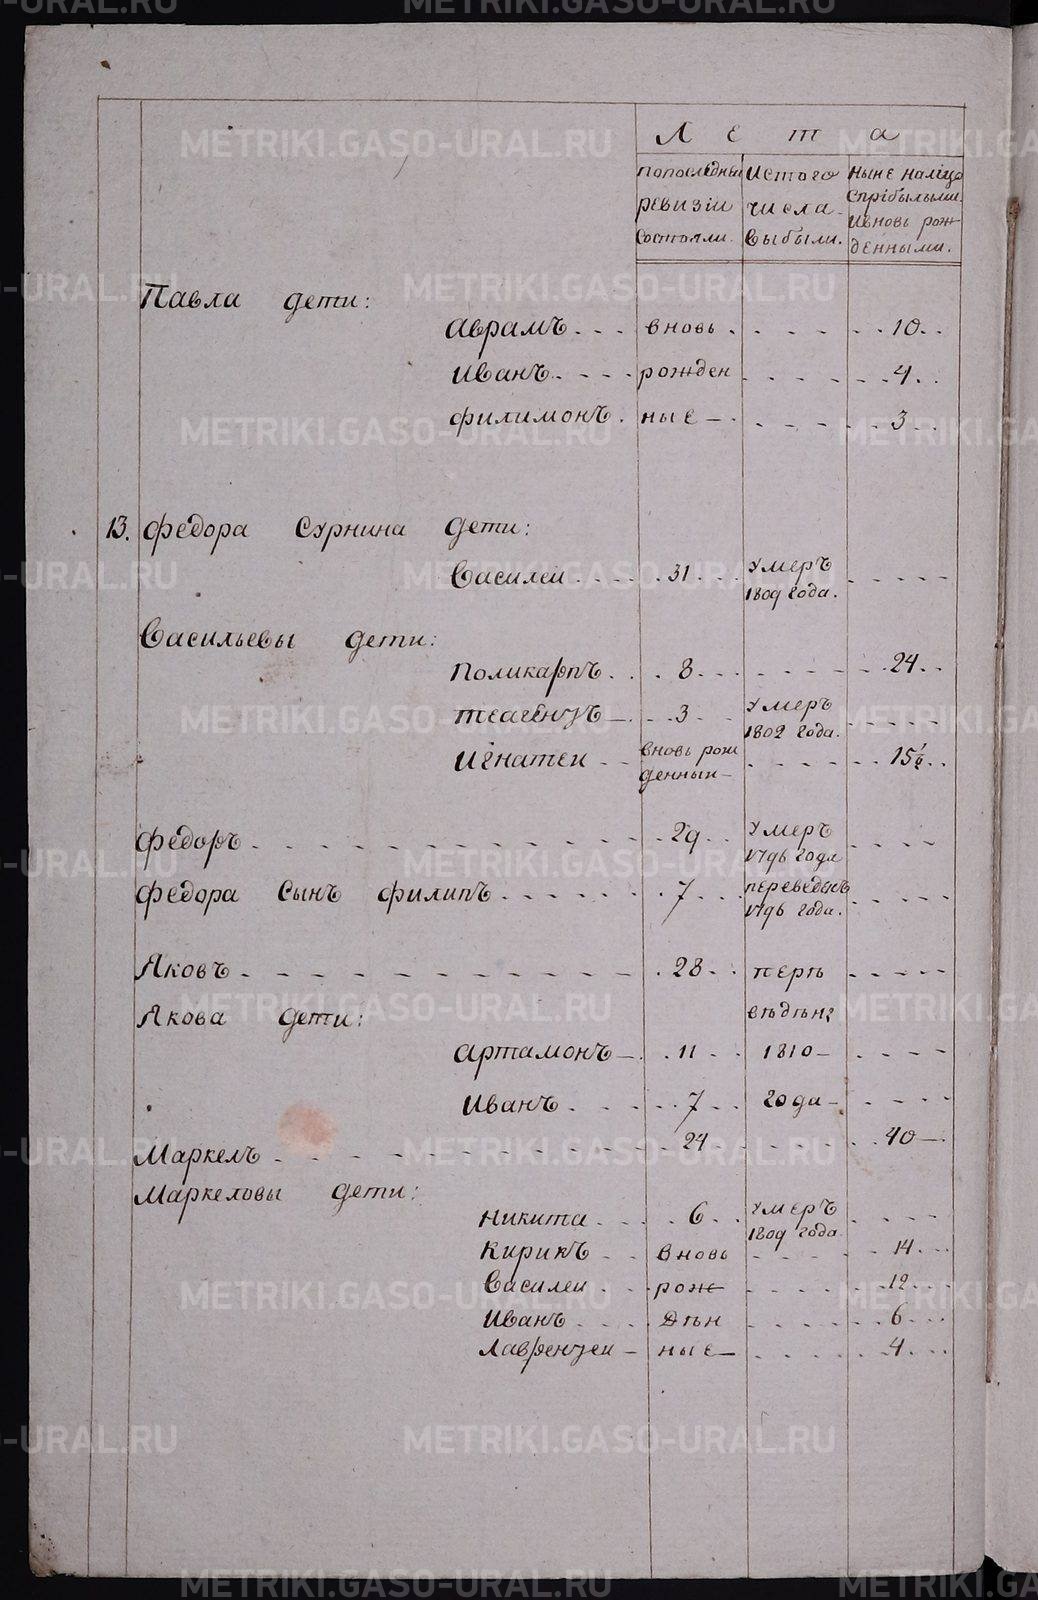 Лета
попоследней ревизiи состояли.
Истого числа выбыли.
Ныне налiцо спрiбылыми ивновь рожденными.
Павла дети:
Аврамъ вновь 10
Иванъ рожден 4
Филимонъ ные 3
13. Федора Сурнина дети:
Василеи 31 умеръ 1809 года.
Васильевы дети:
Поликарпъ 8 24
3 умеръ 1802 года.
Игнатеи вновь рожденныи 15½
Федоръ 29 умеръ 1796 года
Федора сынъ Филипъ 7 переведенъ 1796 года.
Яковъ 28 перѣ
Якова дети: вѣдѣны
Артамонъ 11 1810
Иванъ 7 года
Маркелъ 24 40
Маркеловы дети:
Никита 6 умеръ 1809 года
Кирикъ вновь 14
Василеи рож 12
Иванъ дѣн 6
Лаврентеи ные 4
METRIKI.GASO-URAL.RU